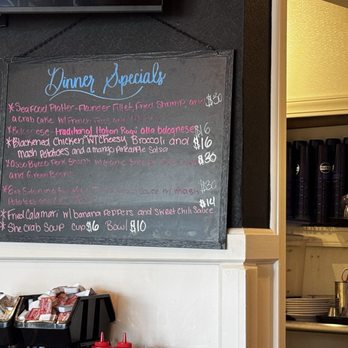 Dinner Specials
*Seafood Platter - Flounder Fillet, Fried Shrimp, and
a crab cake w/ French Fries $30
*Bolognese - traditional Italian Ragu alla bolognese $16
*Blackened Chicken w/ Cheesy Broccoli and $16
mash potatoes and a mango pineapple salsa
Pork Shank $30
and Green Beans
Sauce w/ mash $30
potatoes
*Fried Calamari w/ banana peppers and sweet chili sauce $14
*She Crab Soup Cup $6 Bowl $10